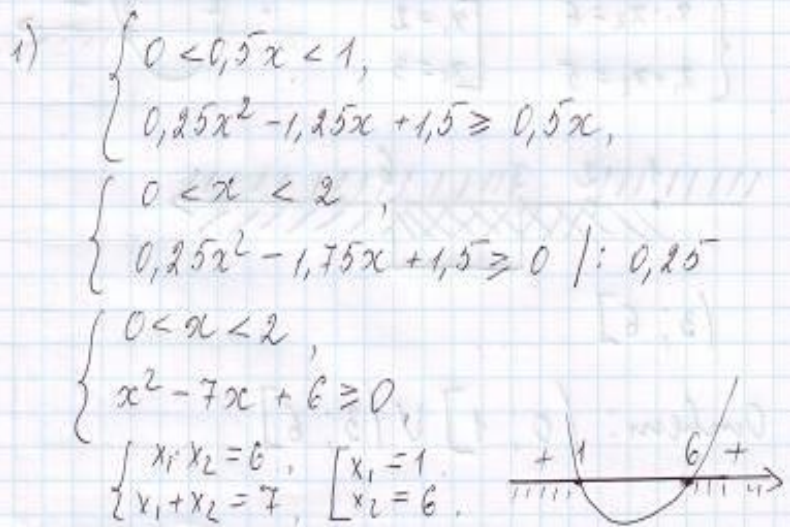 1) { 0 < 0,5x < 1,
0,25x² - 1,25x + 1,5 ⩾ 0,5x,
{ 0 < x < 2 ,
0,25x² - 1,75x + 1,5 ⩾ 0 | : 0,25
{ 0 < x < 2 ,
x² - 7x + 6 ⩾ 0,
{ x₁·x₂ = 6 , [ x₁ = 1 . + 1 6 +
x₁ + x₂ = 7 , x₂ = 6 .